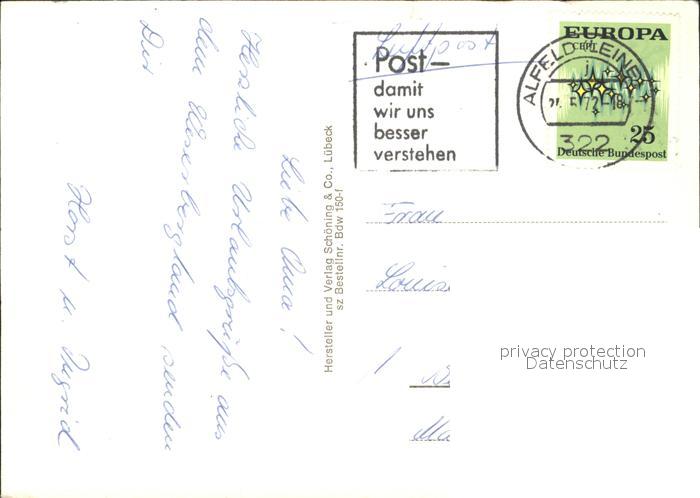 Liebe Oma!
Herzliche Urlaubsgrüße aus
dem Weserbergland senden
Dir
Horst u. Ingrid
Hersteller und Verlag Schöning & Co., Lübeck
sz Bestellnr. Bdw 150-f
Luftpost
Post—
damit
wir uns
besser
verstehen
ALFELD, LEINE
322
EUROPA
CEPT
25
Deutsche Bundespost
Frau
Louis
privacy protection
Datenschutz